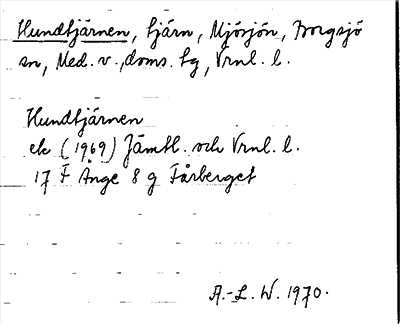 Hundtjärnen, tjärn, Mjösjön, Borgsjö
sn, Med. v., doms. tg, Vrnl. l.
Hundtjärnen
ek (1969) Jämtl. och Vrnl. l.
17 F Ånge 8 g Fårberget
A.-L. W. 1970.